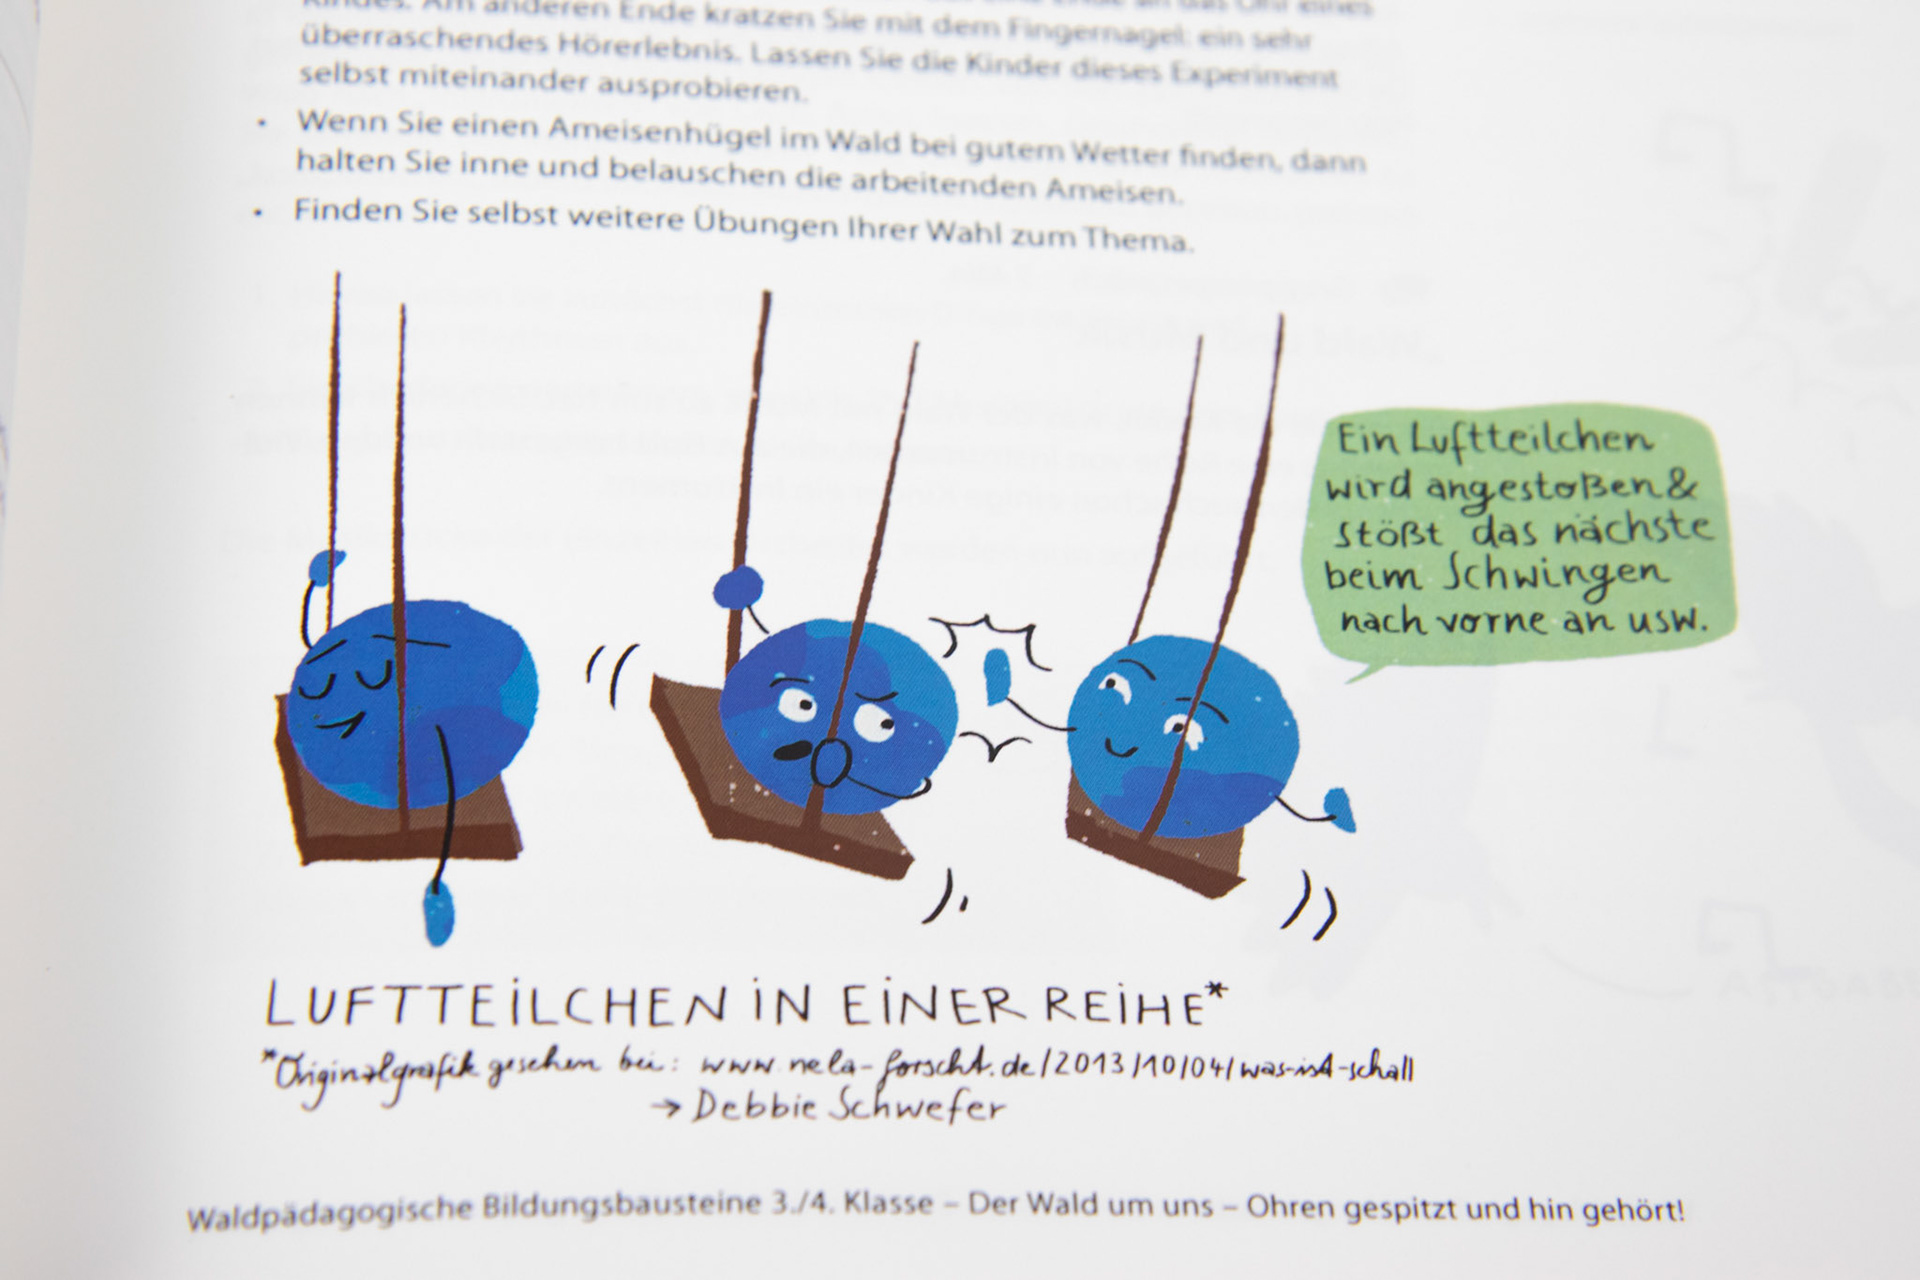 Kindes. Am anderen Ende kratzen Sie mit dem Fingernagel: ein sehr
überraschendes Hörerlebnis. Lassen Sie die Kinder dieses Experiment
selbst miteinander ausprobieren.
• Wenn Sie einen Ameisenhügel im Wald bei gutem Wetter finden, dann
halten Sie inne und belauschen die arbeitenden Ameisen.
• Finden Sie selbst weitere Übungen Ihrer Wahl zum Thema.
Ein Luftteilchen
wird angestoßen &
stößt das nächste
beim Schwingen
nach vorne an usw.
LUFTTEILCHEN IN EINER REIHE*
*Originalgrafik gesehen bei: www.nela-forscht.de/2013/10/04/was-ist-schall
→ Debbie Schwefer
Waldpädagogische Bildungsbausteine 3./4. Klasse – Der Wald um uns – Ohren gespitzt und hin gehört!